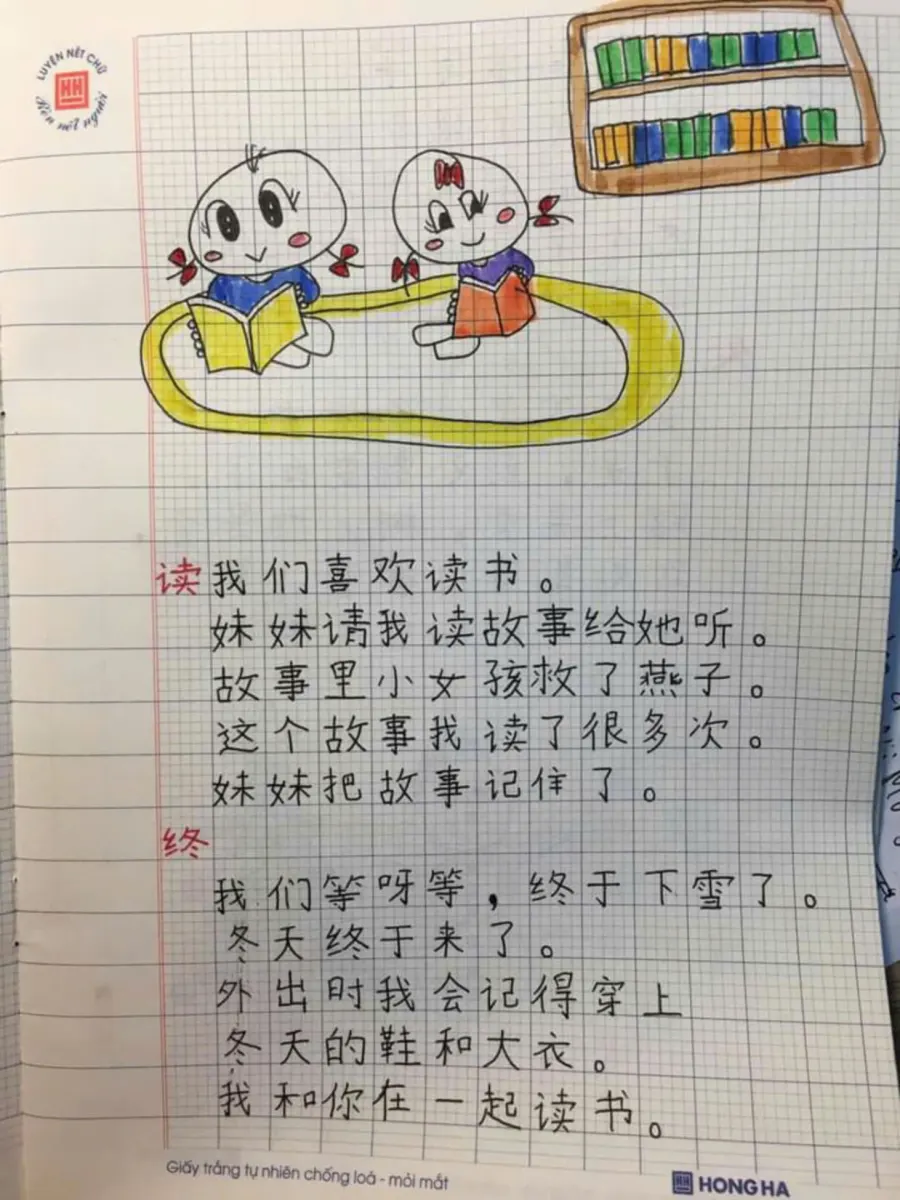 LUYỆN NÉT CHỮ
Rèn nết người
读 我们喜欢读书。
妹妹请我读故事给她听。
故事里小女孩救了燕子。
这个故事我读了很多次。
妹妹把故事记住了。
终
我们等呀等，终于下雪了。
冬天终于来了。
外出时我会记得穿上
冬天的鞋和大衣。
我和你在一起读书。
Giấy trắng tự nhiên chống loá - mỏi mắt
HONG HA